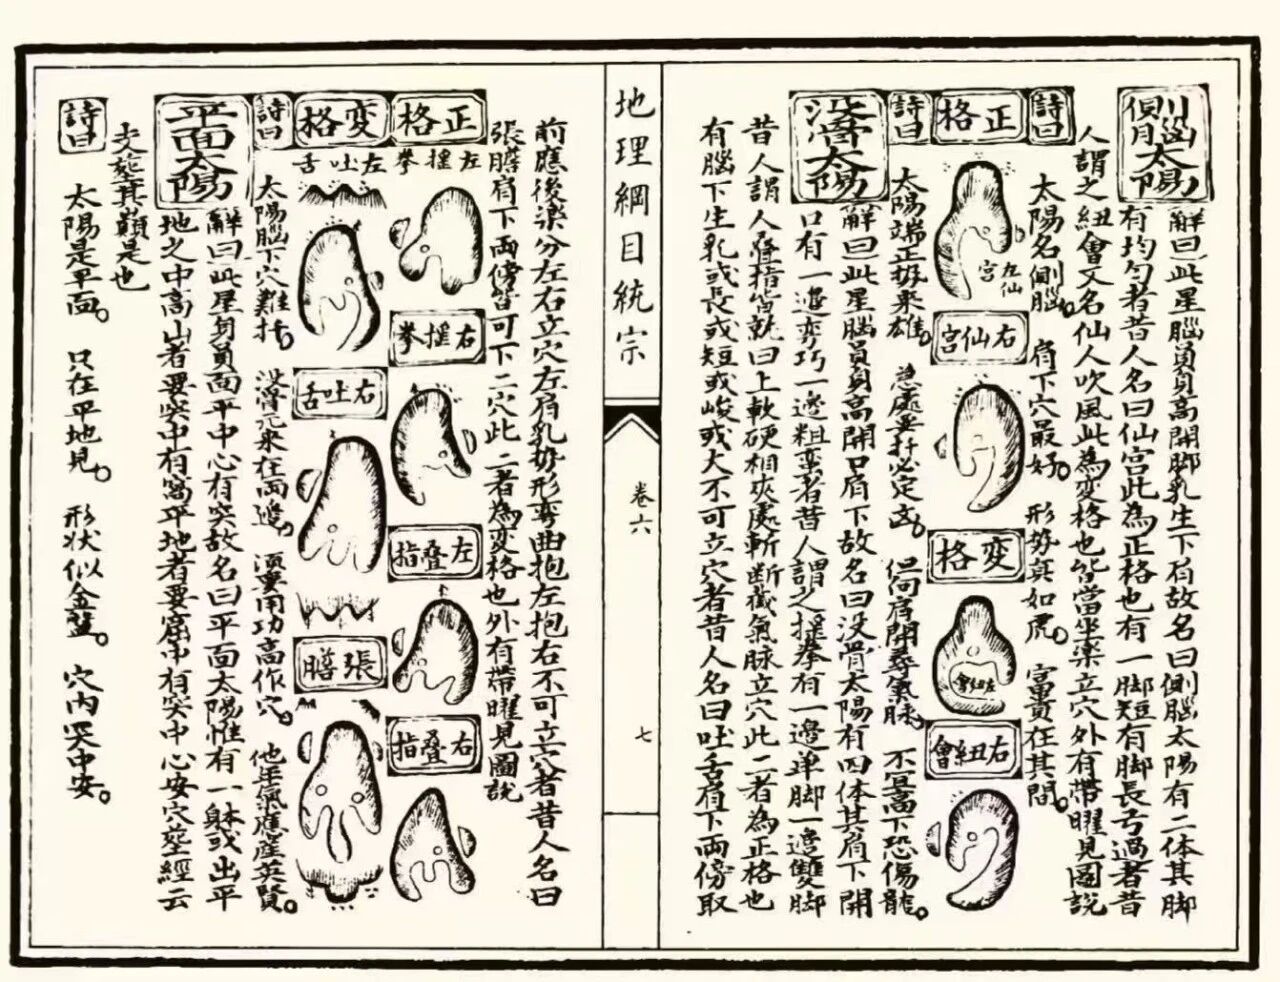 側腦太陽
解曰此星腦員身高開脚乳生下有故名曰側腦太陽有二体其脚
有均勻者昔人名曰仙宮此為正格也有一脚短有脚長弓過者昔
人謂之紐會又名仙人吹風此為変格也皆當坐樂立穴外有帶曜見圖説
詩曰
太陽名側腦。肩下穴最好。形势真如虎。富貴在其間。
正格
左仙宮
右仙宮
変格
左紐會
右紐會
詩曰
太陽端正势来雄。葬必定凶。但向肩開尋氣脉。不宜高下恐傷龍。
没骨太陽
解曰此星腦員身高開口肩下故名曰没骨太陽有四体其肩下開
口有一邉弯巧一邉粗蛮者昔人謂之揺拳有一邉单脚一邉雙脚
昔人謂人叠指皆就曰上軟硬相夾處斬斷截氣脉立穴此二者為正格也
有腦下生乳或長或短或峻或大不可立穴者昔人名曰吐舌肩下両傍取
地理綱目統宗
卷六
七
前應後樂分左右立穴左肩乳势形弯曲抱左抱右不可立穴者昔人名曰
張膽肩下両傍皆可下二穴此二者為変格也外有帶曜見圖説
正格
左揺拳
右揺拳
左叠指
右叠指
変格
左吐舌
右吐舌
張膽
詩曰
太陽腦下穴難扦。没骨元来在両邉。須要用功高作穴。他年氣應産英賢。
平面太陽
解曰此星身員面平中心有突故名曰平面太陽惟有一躰或出平
地之中高山者要突中有窩平地者要窟中有突中心安穴葬經云
其巔是也
詩曰
太陽是平面。只在平地見。形状似金盤。穴内突中安。